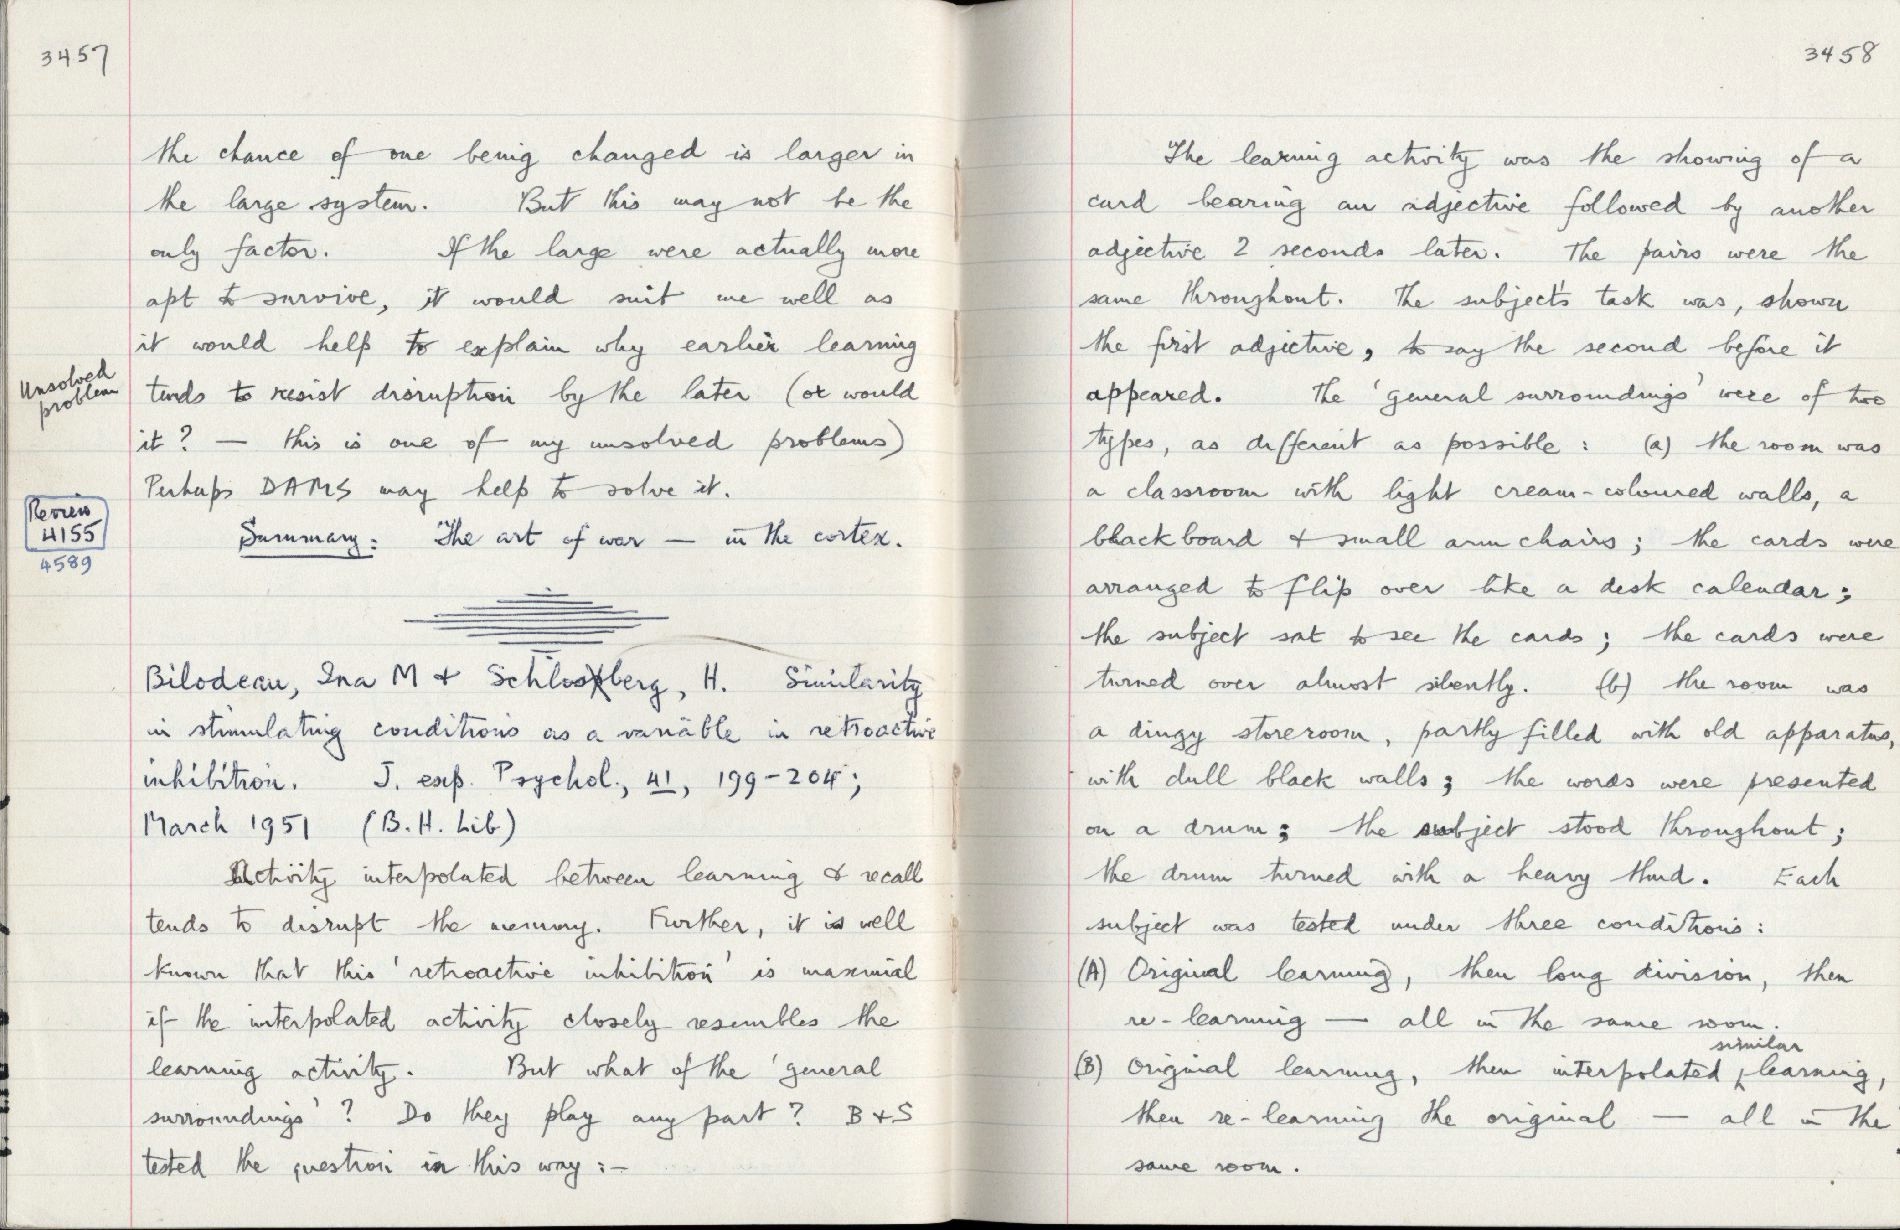 3457
the chance of one being changed is larger in
the large system. But this may not be the
only factor. If the large were actually more
apt to survive, it would suit me well as
it would help to explain why earlier learning
Unsolved
problem
tends to resist disruption by the later (or would
it? — this is one of my unsolved problems)
Perhaps DAMS may help to solve it.
Review
4155
4589
Summary: The art of war — in the cortex.
Bilodeau, Ina M & Schlosberg, H. Similarity
in stimulating conditions as a variable in retroactive
inhibition. J. exp. Psychol., 41, 199-204;
March 1951 (B.H. Lib)
Activity interpolated between learning & recall
tends to disrupt the memory. Further, it is well
known that this 'retroactive inhibition' is maximal
if the interpolated activity closely resembles the
learning activity. But what of the 'general
surroundings'? Do they play any part? B & S
tested the question in this way :-
3458
The learning activity was the showing of a
card bearing an adjective followed by another
adjective 2 seconds later. The pairs were the
same throughout. The subject's task was, shown
the first adjective, to say the second before it
appeared. The 'general surroundings' were of two
types, as different as possible : (a) the room was
a classroom with light cream-coloured walls, a
blackboard & small arm chairs; the cards were
arranged to flip over like a desk calendar;
the subject sat to see the cards; the cards were
turned over almost silently. (b) the room was
a dingy storeroom, partly filled with old apparatus,
with dull black walls; the words were presented
on a drum; the subject stood throughout;
the drum turned with a heavy thud. Each
subject was tested under three conditions:
(A) Original learning, then long division, then
re-learning — all in the same room.
(B) Original learning, then interpolated similar learning,
then re-learning the original — all in the
same room.